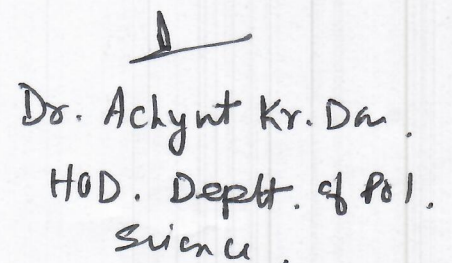 Dr. Achyut Kr. Das.
HOD. Deptt. of Pol.
Science.